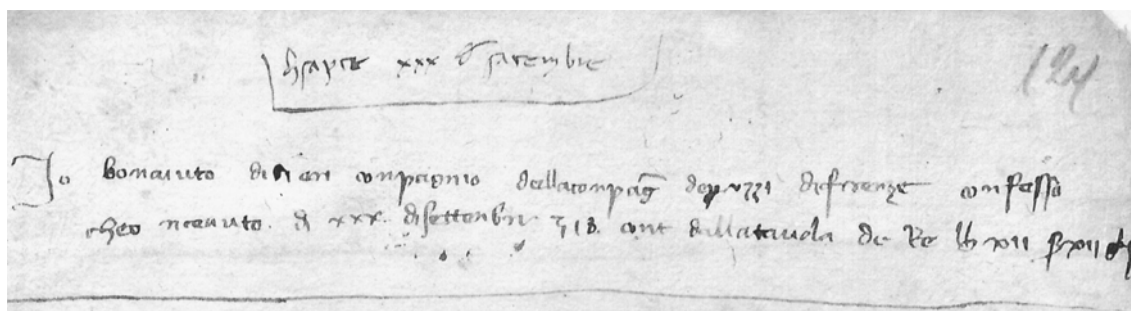 xxx satembre
124
Io bonaiuto di conpagnio della conpag de peruzzi di firenze confesso
cheo riceuuto di xxx di settenbre dalla tauola de Re lb xii s xii